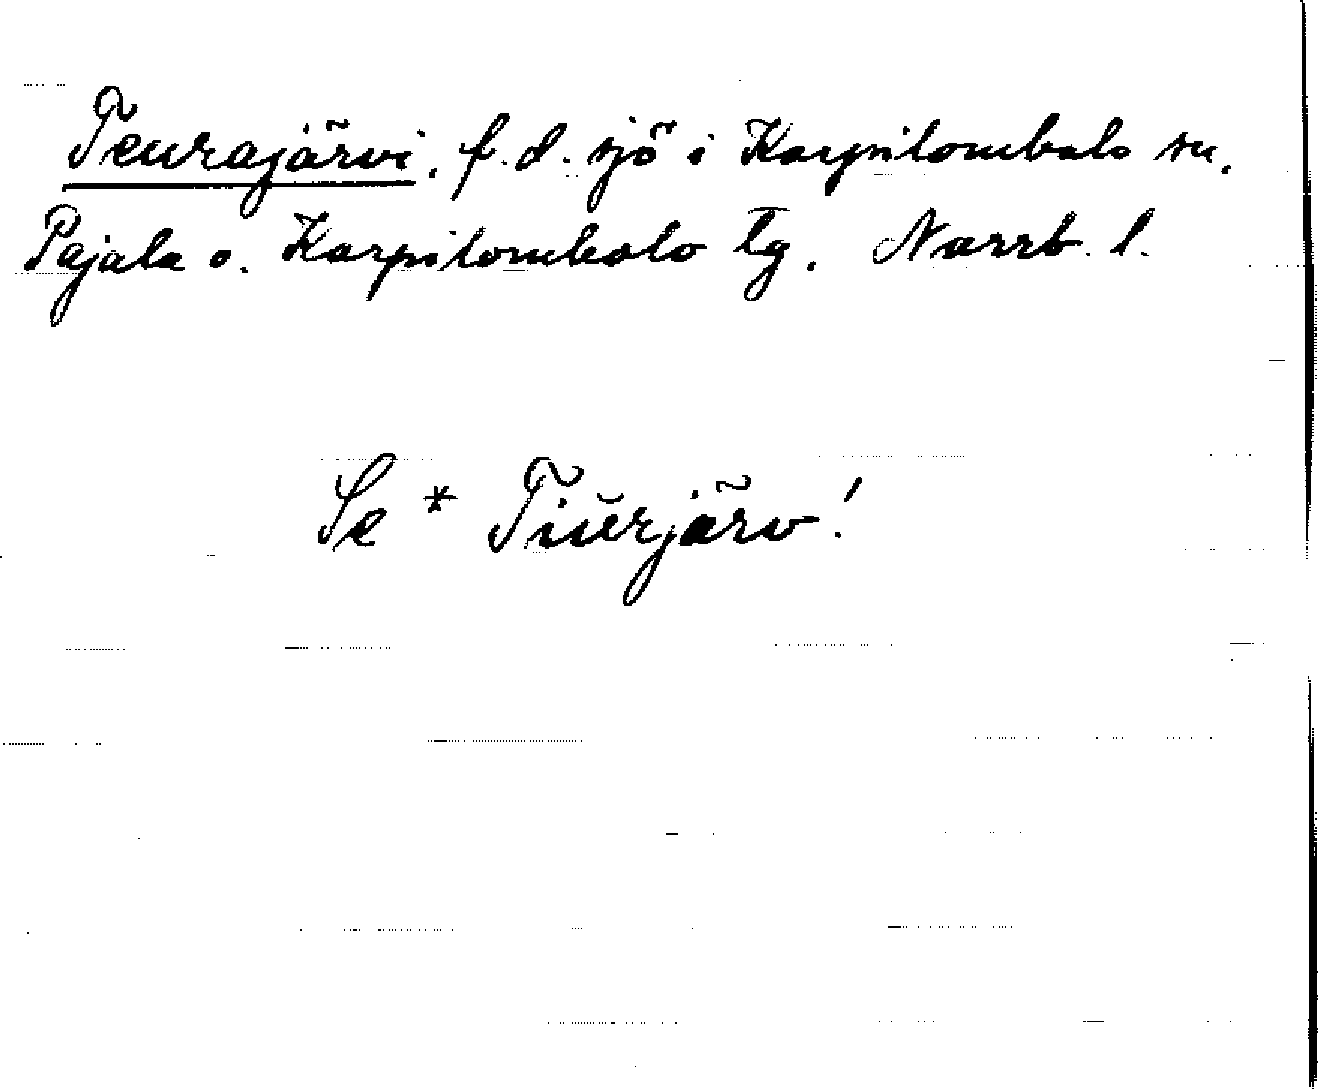 Teurajärvi, f.d. sjö i Karpilombolo sn,
Pajala o. Karpilombolo tg. Norrb. l.
Se * Tiŭrjärv!